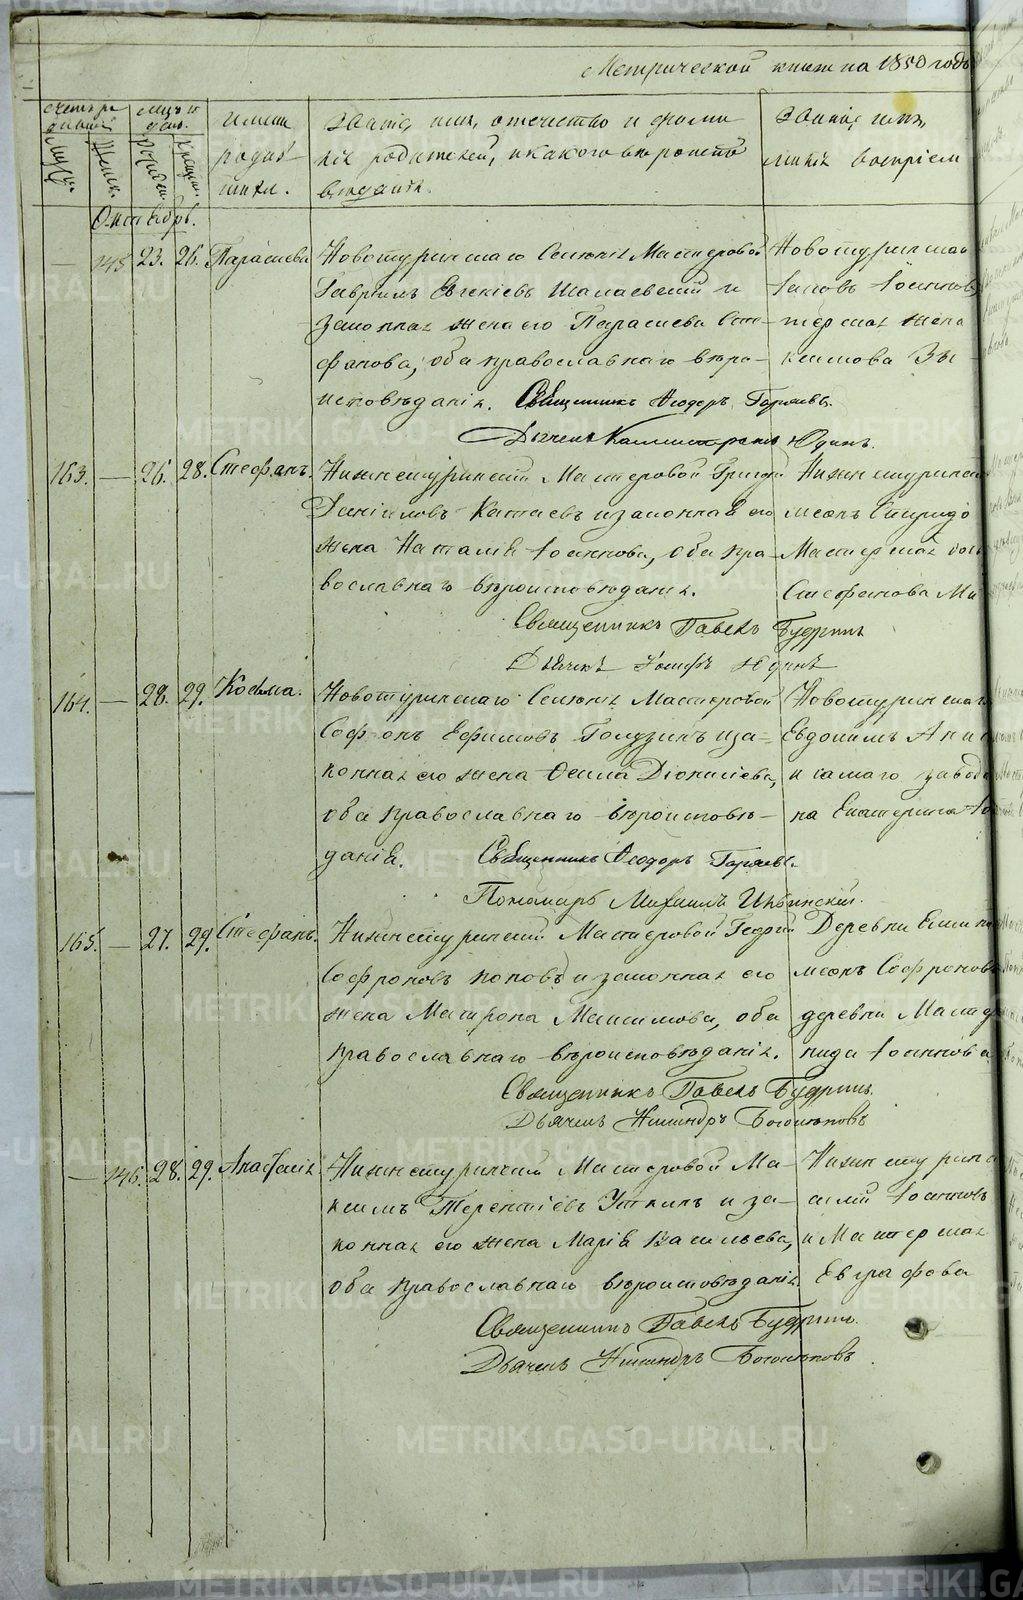 Метрической книги на 1850 годъ
Счетъ ро
дившей
Муж.
Жен.
Мцъ и
день.
Рожден.
Крещен.
Имена
родив
шихъ.
Званіе, имя, отечество и фами
лія родителей, и какого вѣроиспо
вѣданія.
Званіе, имя,
милія воспріем
Октябрь.
— 145 23. 26. Параскева
Новотуринскаго Селенія Мастеровой
Гавріилъ Евгеніевъ Шалаевскій и
законная жена его Параскева Сте
фанова, оба православнаго вѣро
исповѣданія. Священникъ Ѳеодоръ
Юдинъ.
Новотуринскаг
Іоаннов
терская жена
163. — 26. 28. Стефанъ.
Нижнетуринскій Мастеровой Григорій
Даніиловъ Катаевъ и законная его
жена Наталія Іоаннова, оба пра
вославнаго вѣроисповѣданія.
Священникъ Павелъ Будринъ
Дьячекъ Іосифъ Юдинъ
Нижнетуринск
меонъ Спиридо
Мастерская
Стефанова
164. — 28. 29. Косьма.
Новотуринскаго Селенія Мастеровой
Софронъ Ефимовъ Голузинъ и за
конная его жена Ѳекла Діонисіева,
оба православнаго вѣроисповѣ
данія. Священникъ Ѳеодоръ
Пономарь Михаилъ Ильинскій.
Новотуринскаго
Евдокимъ
и самаго завода
на Екатерина
165. — 27. 29. Стефанъ.
Нижнетуринскій Мастеровой Георгій
Софроновъ Поповъ и законная его
жена Матрона Максимова, оба
православнаго вѣроисповѣданія.
Священникъ Павелъ Будринъ.
Дьячекъ Никандръ Богомоловъ
Деревни
меонъ Софроновъ
деревни Мастер
нида Іоаннова
— 146. 28. 29. Анастасія
Нижнетуринскій Мастеровой Ма
ксимъ Терентіевъ Уткинъ и за
конная его жена Марія Васильева,
оба православнаго вѣроисповѣданія.
Священникъ Павелъ Будринъ.
Дьячекъ Никандръ Богомоловъ
Нижнетуринс
силій Іоанновъ
и Мастерская
Евграфова
METRIKI.GASO-URAL.RU